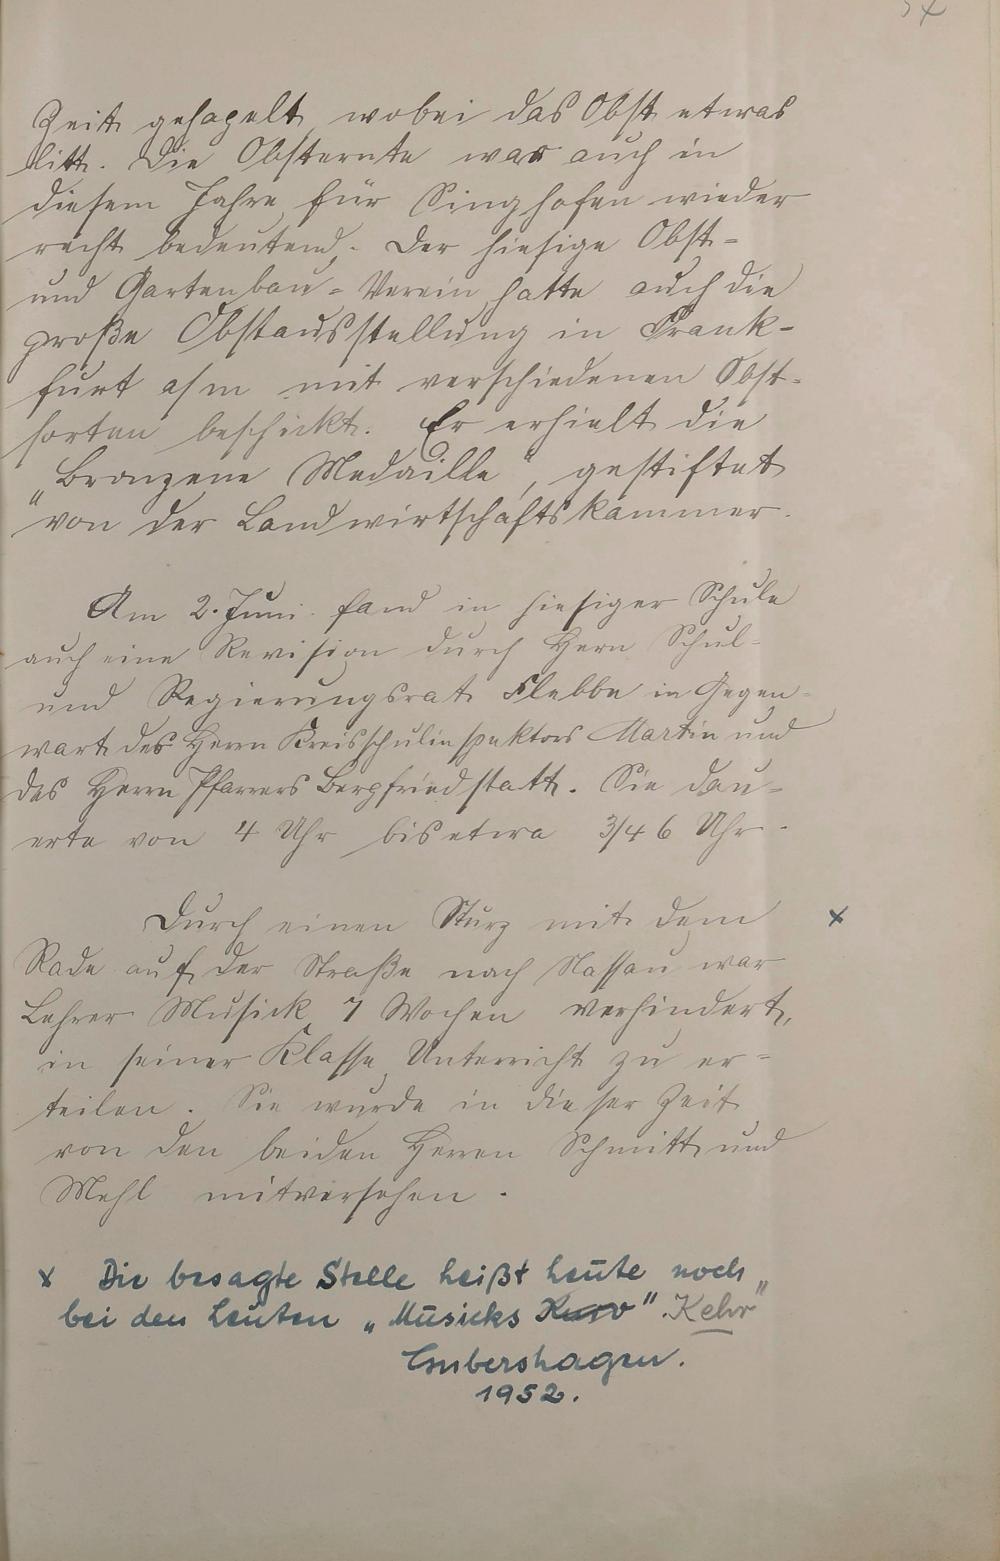 Zeit gehapelt, wobei das Obst etwas
litt. Die Obsternte war auch in
diesem Jahre für Singhofen wieder
recht bedeutend. Der hiesige Obst-
und Gartenbau-Verein hatte auch die
große Obstausstellung in Frank-
furt a/m mit verschiedenen Obst-
sorten beschickt. Er erhielt die
„Bronzene Medaille“, gestiftet
von der Landwirtschaftskammer.
Am 2. Juni fand in hiesiger Schule
auch eine Revision durch Herrn Schul-
und Regierungsrat Flebbe in Gegen-
wart des Herrn Kreisschulinspektors Martin und
des Herrn Pfarrers Bergfried statt. Sie dau-
erte von 4 Uhr bis etwa 3/4 6 Uhr.
Durch einen Sturz mit dem x
Rade auf der Straße nach Nassau war
Lehrer Musick 7 Wochen verhindert,
in seiner Klasse Unterricht zu er-
teilen. Sie wurde in dieser Zeit
von den beiden Herren Schmitt und
Mehl mitversehen.
x Die besagte Stelle heißt heute noch
bei den Leuten „Musicks Kurv“ „Kehr“
1952.